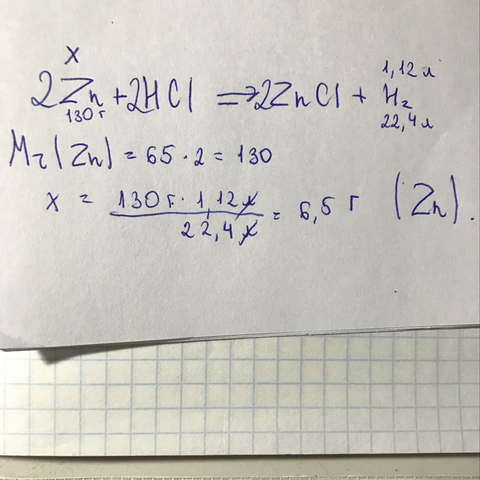 x 1,12 л
2Zn + 2HCl => 2ZnCl + H₂
130 г 22,4 л
Mr (Zn) = 65 · 2 = 130
x = 130 г · 1,12 л / 22,4 л = 6,5 г (Zn).